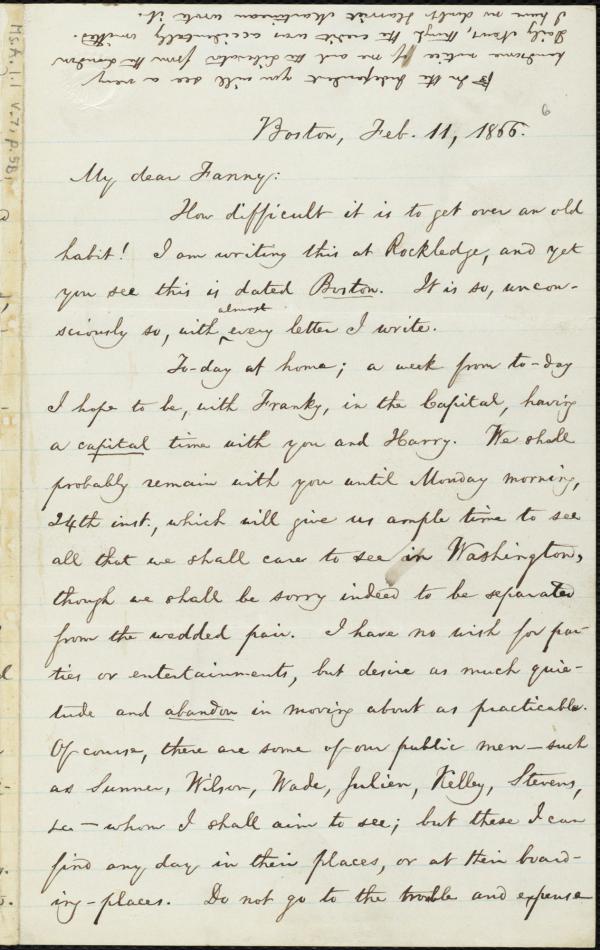 ☞ In the Independent you will see a very
handsome notice of me and the Liberator from the London
Daily News, though the credit was accidentally omitted.
I have no doubt Harriet Martineau wrote it.
Ms. A. 1.1 v. 7, p. 5B,
6
Boston, Feb. 11, 1866.
My dear Fanny:
How difficult it is to get over an old
habit! I am writing this at Rockledge, and yet
you see this is dated Boston. It is so, uncon-
almost
sciously so, with ‸ every letter I write.
To-day at home; a week from to-day
I hope to be, with Franky, in the Capital, having
a capital time with you and Harry. We shall
probably remain with you until Monday morning,
24th inst., which will give us ample time to see
all that we shall care to see in Washington,
though we shall be sorry indeed to be separated
from the wedded pair. I have no wish for par-
ties or entertainments, but desire as much quie-
tude and abandon in moving about as practicable.
Of course, there are some of our public men — such
as Sumner, Wilson, Wade, Julien, Kelley, Stevens,
&c — whom I shall aim to see; but these I can
find any day in their places, or at their board-
ing-places. Do not go to the trouble and expense